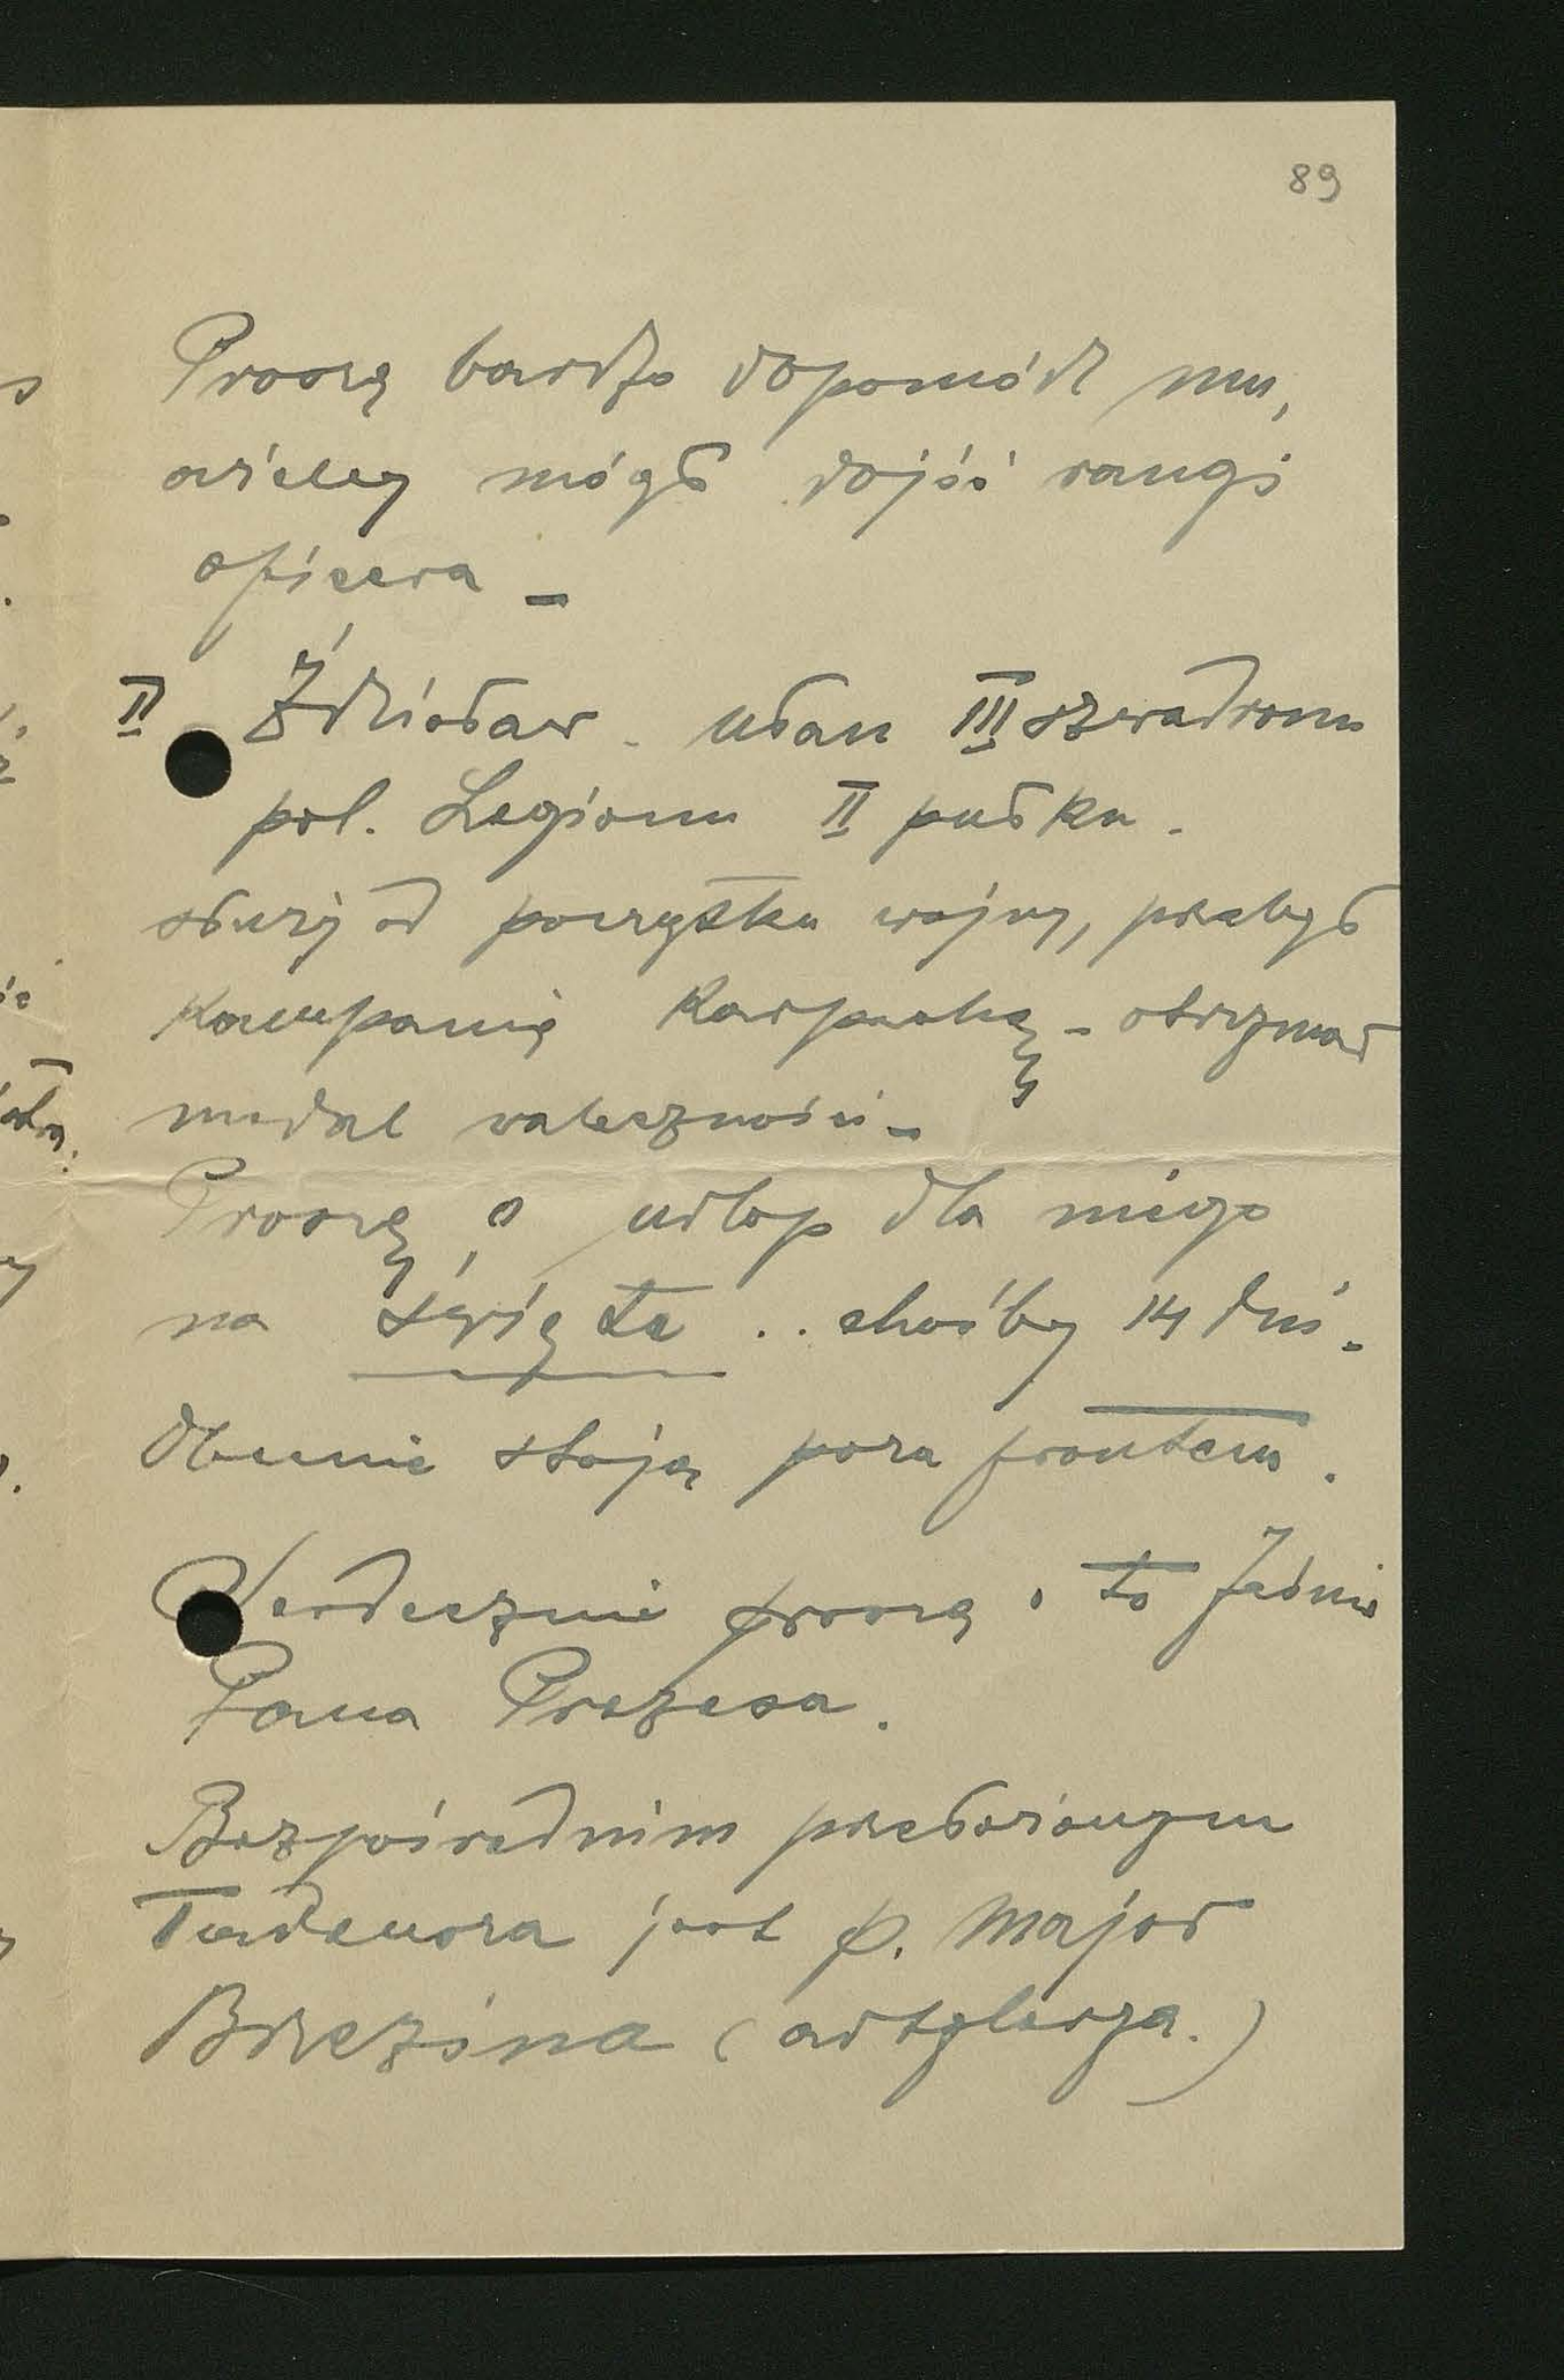 89
Proszę bardzo dopomódz mu,
ażeby mógł dojść rangi
oficera –
II Zdzisław. ułan III szwadronu
pol. Legionu II pułku.
służy od początku wojny, przebył
Kampanię Karpacką – otrzymał
medal waleczności –
Proszę o urlop dla niego
na święta .. choćby 14 dni.
Obecnie stoją poza frontem.
Serdecznie proszę o to Jaśnie
Pana Prezesa.
Bezpośrednim przełożonym
Tadeusza jest p. Major
Brzezina (artylerya.)